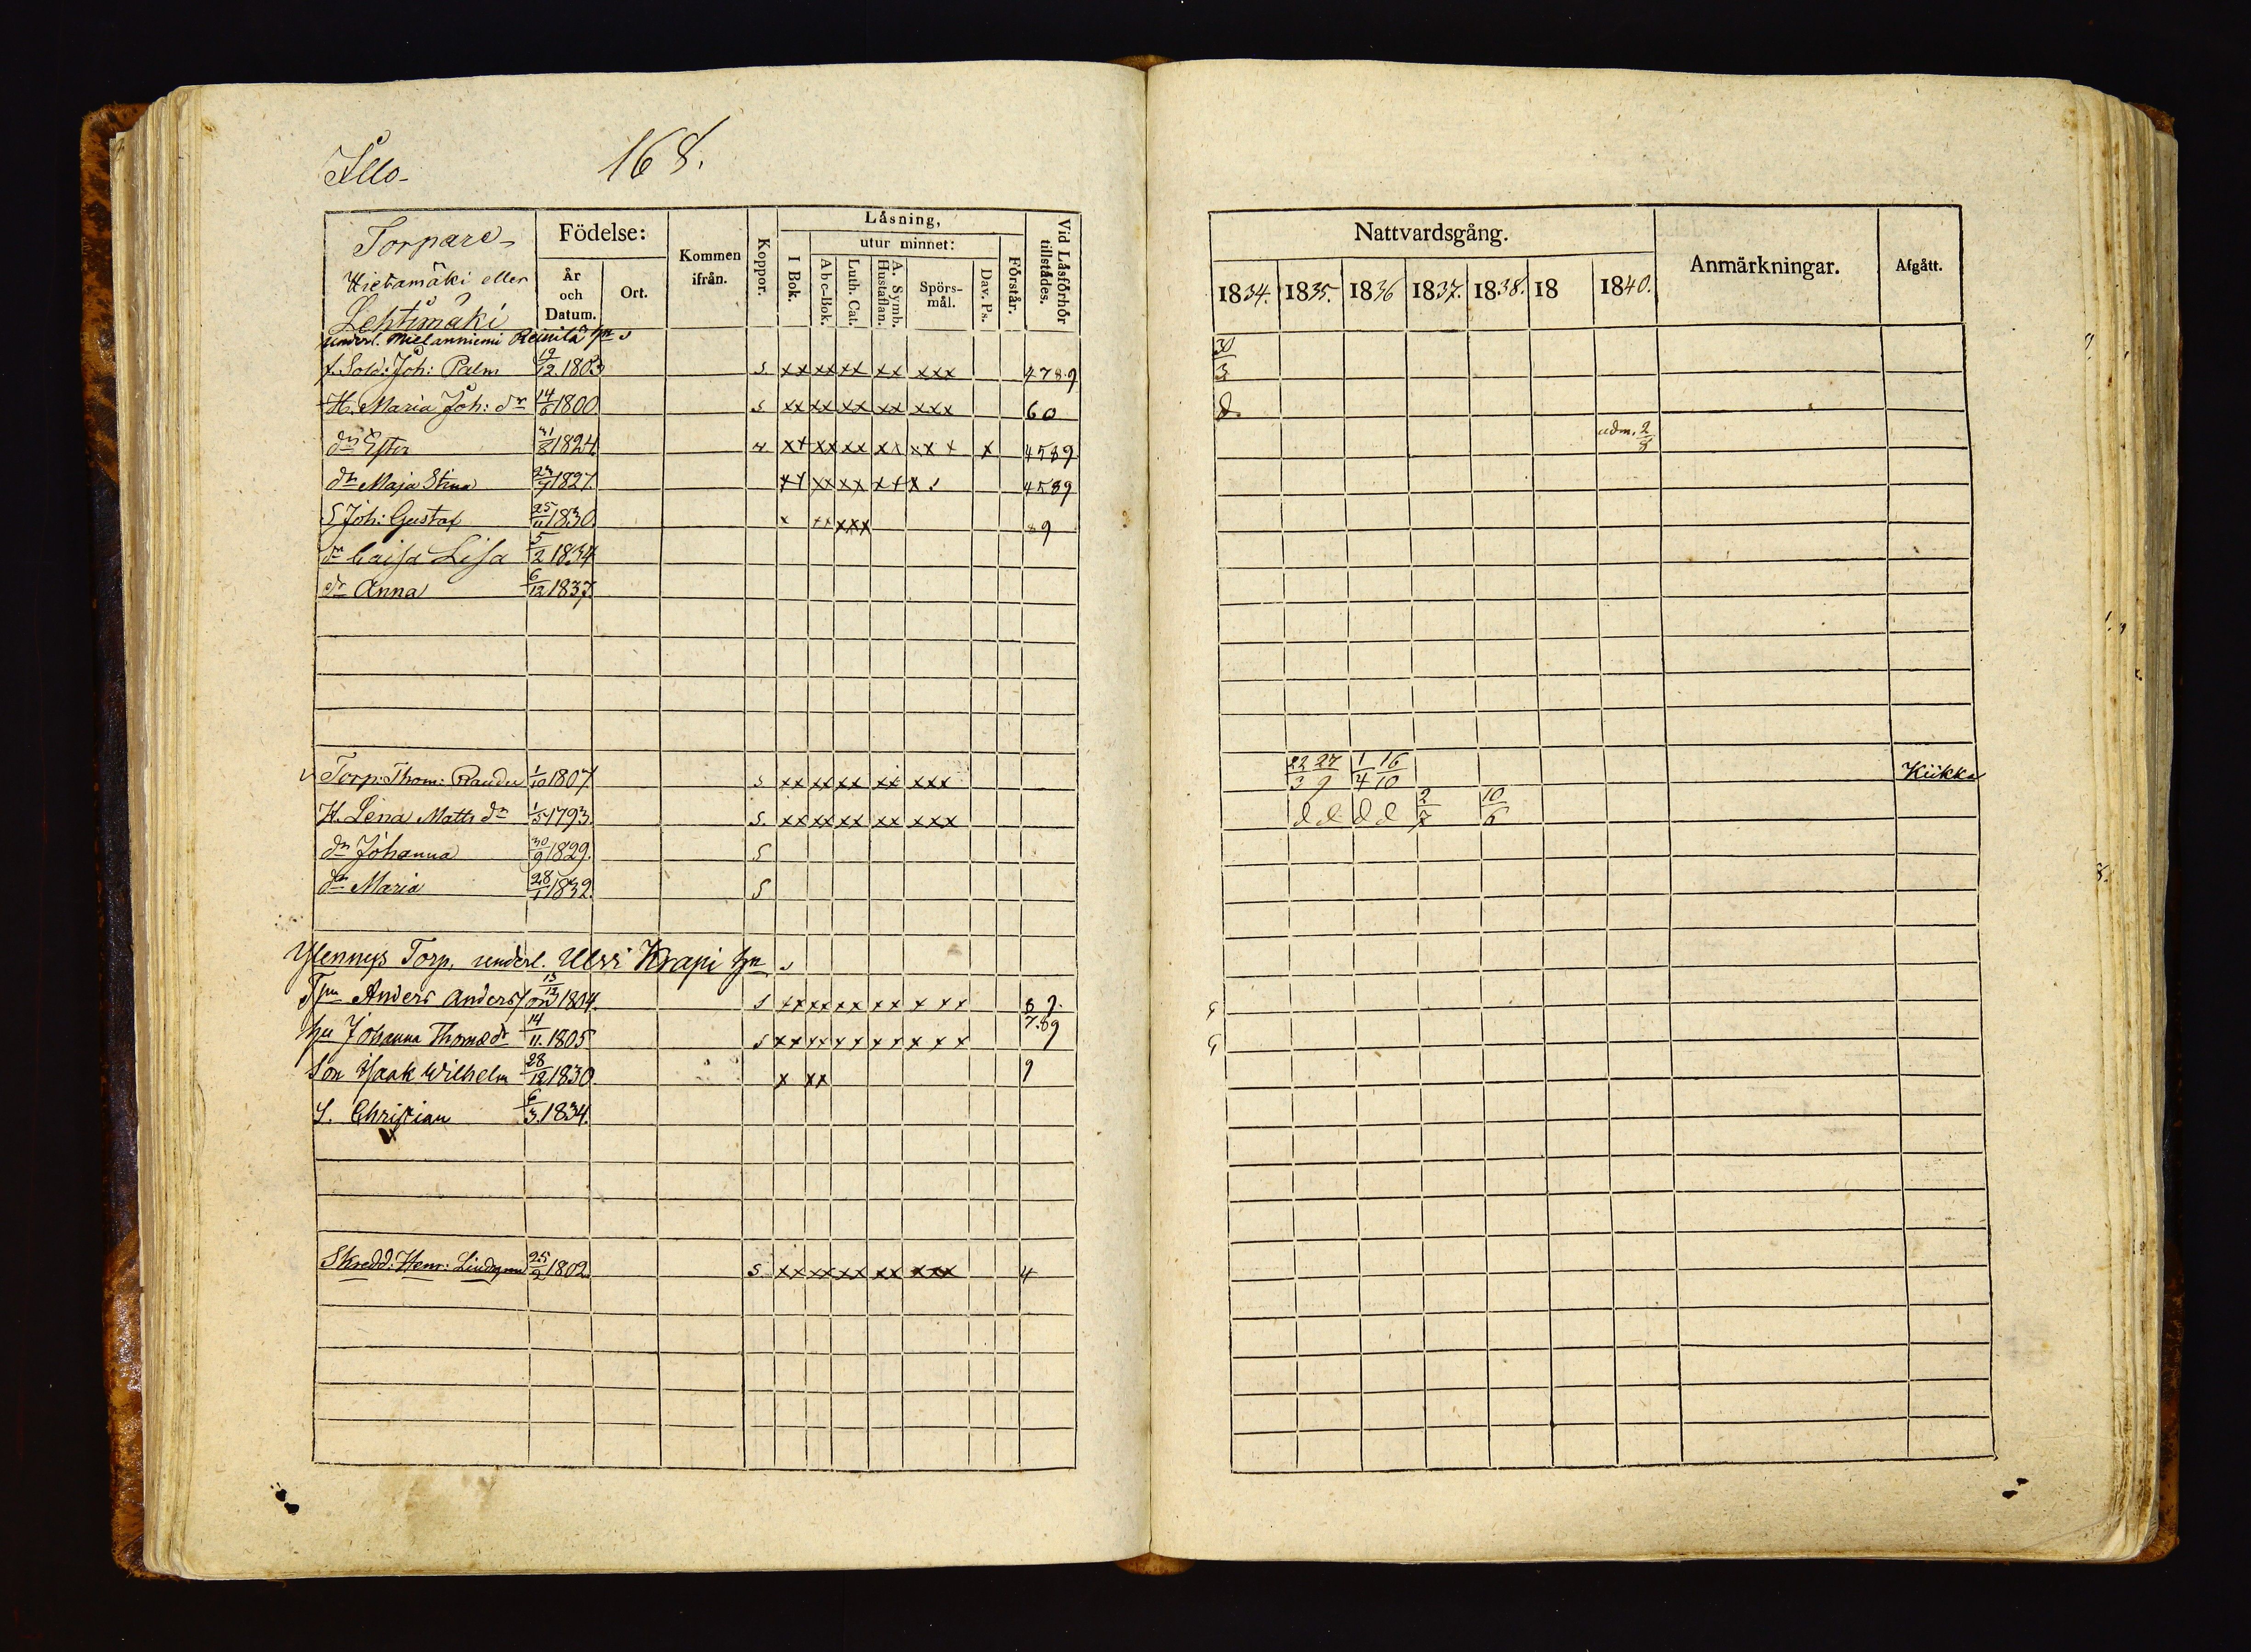 Illo-
168.
Torpare-
Hietamäki eller
Lehtimäki
underl. Mielanniemi Reinilä hn
Födelse:
År och Datum.
Ort.
Kommen ifrån.
Koppor.
Läsning,
utur minnet:
I Bok.
Abc-Bok.
Luth. Cat.
A. Symb. Hustaflan.
Spörs-mål.
Dav. Ps.
Förstår.
Vid Läsförhör tillstädes.
Nattvardsgång.
1834. 1835. 1836 1837. 1838. 18 1840.
Anmärkningar.
Afgått.
f. Sold: Joh: Palm 19/12 1803 s xx xx xx xx xxx 478.9 30/3
H. Maria Joh: dr 14/6 1800 s xx xx xx xx xxx 60 d.
dr Ester 31/8 1824 xx xx xx xx xx x x 4589 adm. 2/8
dr Maja Stina 23/9 1827. xx xx xx xx x 4589
S Joh: Gustaf 25/11 1830 x xx xxx 89
dr Caisa Lisa 5/2 1834
dr Anna 6/12 1837
Torp: Thom: 1/10 1807 s xx xx xx xx xxx 22/3 27/9 1/4 16/10 Kiikka
H. Lena Matts dr 1/5 1793. s. xx xx xx xx xxx d d d d 2/7 10/6
dr Johanna 30/9 1829. s
dr Maria 28/1 1832. s
Torp. underl. Ulvi Krapi hn
Tpn Anders Andersson 13/12 1804. s xx xx xx xx x xx 8 9.
hu Johanna Thomædr 14/11. 1805 s xx xx xx xx x x x 7.89
Son Isaak Wilhelm 28/12 1830 x xx 9
S. Christian 6/3. 1834.
Skredd: Henr: 25/2 1802. s xx xx xx xx xxx 4